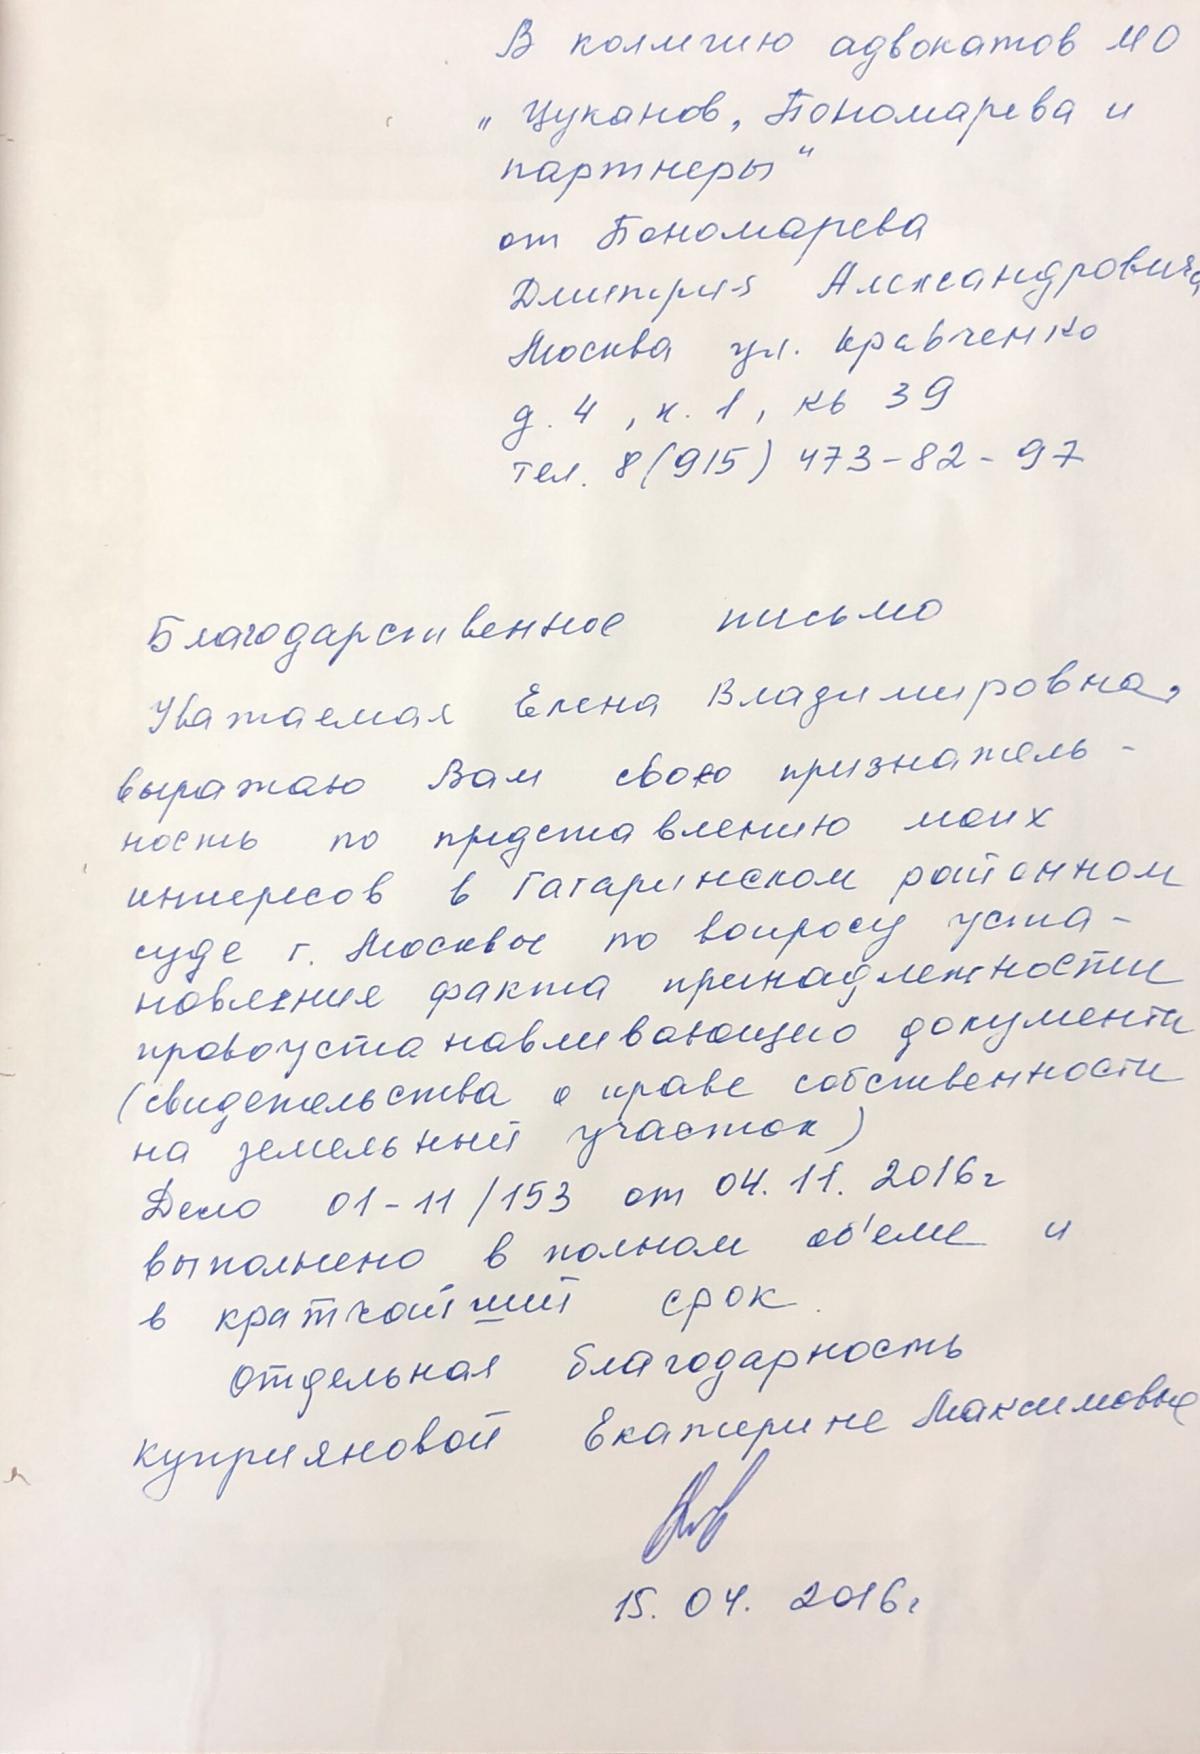 В коллегию адвокатов МО
"Цуканов, Пономарева и
партнеры"
от Пономарева
Дмитрия Александровича,
Москва ул. Кравченко
д. 4, к. 1, кв 39
тел. 8(915) 473-82-97
Благодарственное письмо
Уважаемая Елена Владимировна,
выражаю Вам свою признатель-
ность по представлению моих
интересов в Гагаринском районном
суде г. Москвы по вопросу уста-
новления факта принадлежности
провоустанавливающио документа
(свидетельства о праве собственности
на земельный участок)
Дело 01-11/153 от 04.11.2016г
выполнено в полном об'еме и
в кратчайший срок.
Отдельная благодарность
Куприяновой Екатерине Максимовне
15.04.2016г